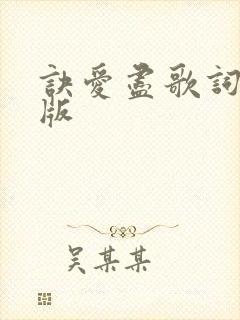 訣愛盡歌詞
版
吴某某